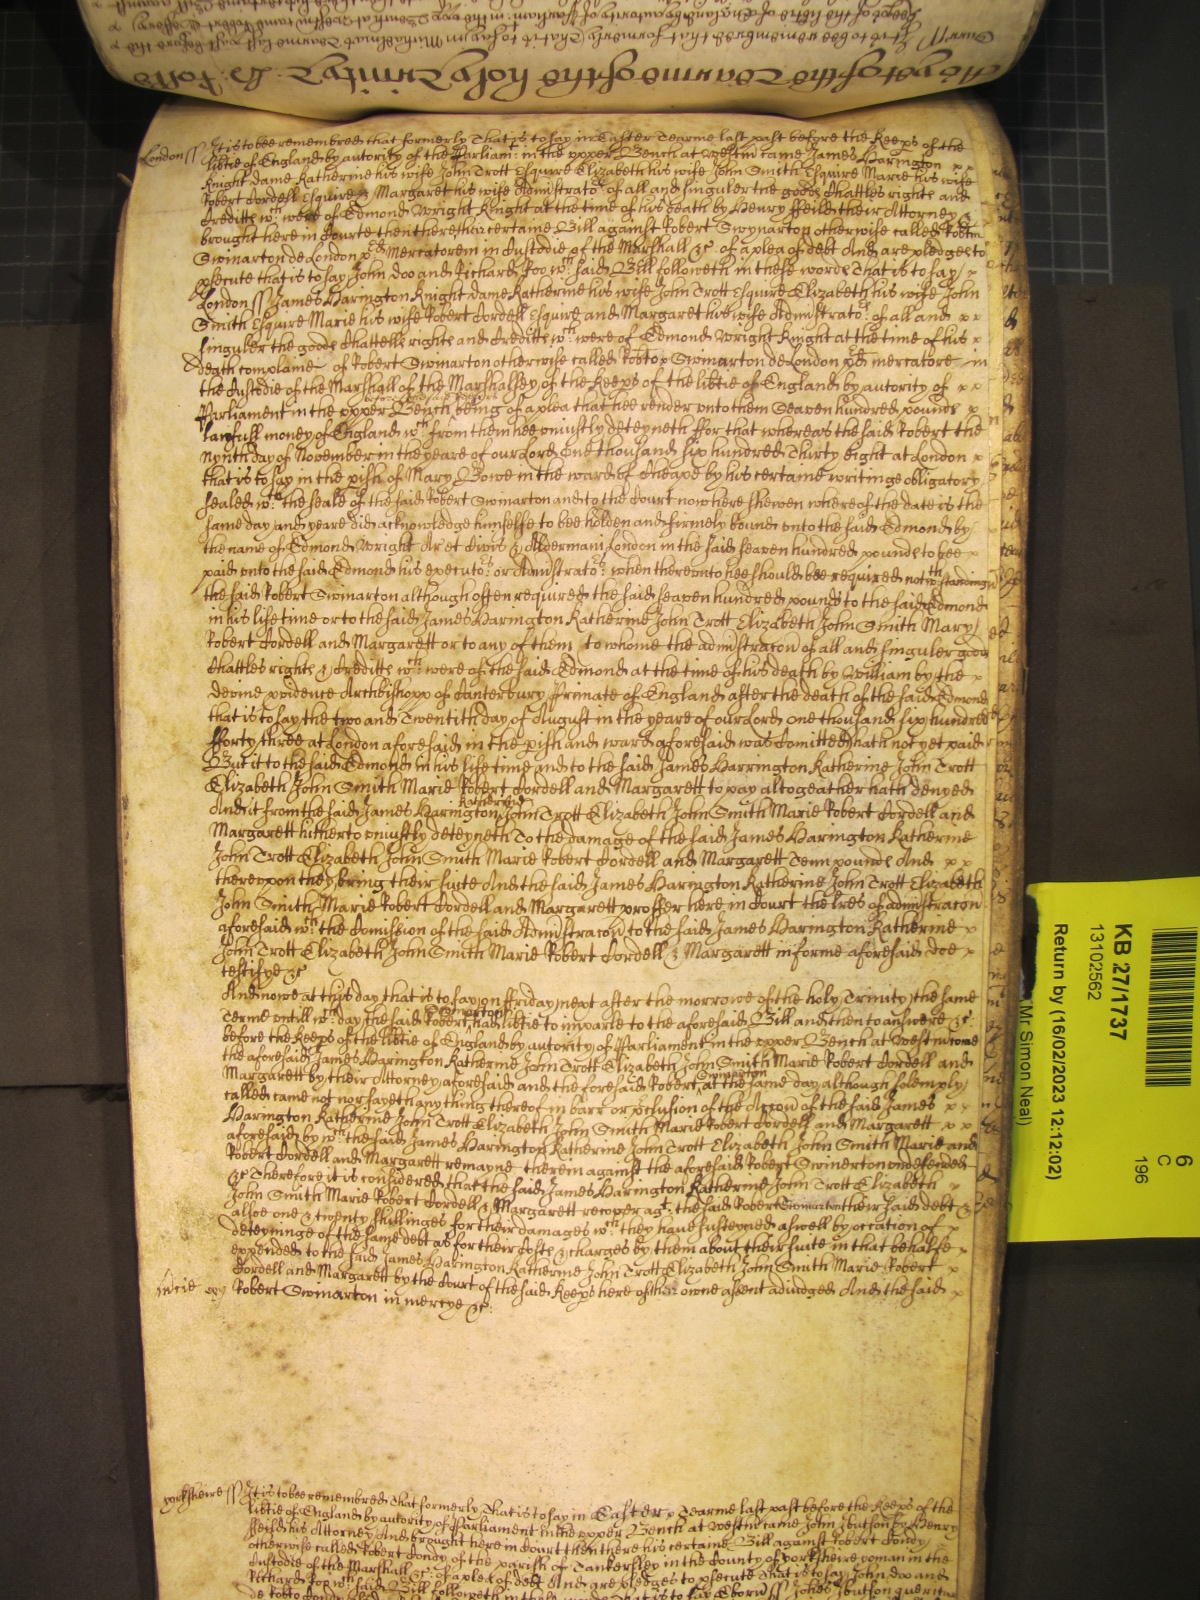 London ss It is to bee remembred that formerly That is to say in Easter Tearme last past before the Keeps of the
lib'tie of England by autority of the Parliamt: in the upper Bench at Westm' came James Harington x x
Knight dame Katherine his wife John Trott Esquire Elizabeth his wife John Smith Esquire Marie his wife
Robert Cordell Esquire & Margaret his wife Administrators of all and singuler the goods Chattles rights and
Creditts wch were of Edmond Wright Knight at the time of his death by Henry ffeild their Attorney &
brought here in Courte then there their certaine Bill against Robert Swynarton otherwise called Robtm
Swinarton de London Mercatorem in Custodie of the Marshall &c of a plea of debt And are pledges to
psecute that is to say John Doo and Richard Roo wch said Bill followeth in these words That is to say x
London ss James Harington Knight dame Katherine his wife John Trott Esquire Elizabeth his wife John
Smith Esquire Marie his wife Robert Cordell Esquire and Margaret his wife Administrators of all and x x
singuler the goods Chattells rights and Creditts wch were of Edmond Wright Knight at the time of his x
death complaine of Robert Swinarton otherwise called Robto Swinarton de London mercatore in
the Custodie of the Marshall of the Marshalsey of the Keeps of the lib'tie of England by autority of x x
Parliament in the upper Bench being of a plea that hee render unto them Seaven hundred pounds x
lawfull money of England wch from them hee uniustly deteyneth ffor that whereas the said Robert the
nynth day of November in the yeare of our Lord One thousand six hundred Thirty eight at London x
that is to say in the pish of Mary Bowe in the ward of Cheape by his certaine writinge obligatory
sealed wth the seale of the said Robert Swinarton and to the Court now here shewen whereof the date is the
same day and yeare did acknowledge himselfe to bee holden and firmely bound unto the said Edmond by
the name of Edmond Wright Ar et Civis & Alderman London in the said seaven hundred pounds to bee x
paid unto the said Edmond his executors or Administrators when thereunto hee should bee required notwthstanding
the said Robert Swinarton although often required the said seaven hundred pounds to the said Edmond
in his life time or to the said James Harington Katherine John Trott Elizabeth John Smith Mary
Robert Cordell and Margarett or to any of them to whome the administracon of all and singuler goods
Chattles rights & Creditts wch were of the said Edmond at the time of his death by William by the x
devine pvidence Archbishopp of Canterbury Primate of England after the death of the said Edmond
that is to say the two and Twentith day of August in the yeare of our Lord one thousand six hundred
fforty three at London aforesaid in the pish and ward aforesaid was Comitted hath not yet paid
But it to the said Edmond in his life time and to the said James Harrington Katherine John Trott
Elizabeth John Smith Marie Robert Cordell and Margarett to pay altogeather hath denyed
And it from the said James Harington Katherine John Trott Elizabeth John Smith Marie Robert Cordell and
Margarett hitherto uniustly deteyneth To the damage of the said James Harington Katherine
John Trott Elizabeth John Smith Marie Robert Cordell and Margarett Tenn pounds And x x
thereupon they bring their suite And the said James Harington Katherine John Trott Elizabeth
John Smith Marie Robert Cordell and Margarett proffer here in Court the lres of administracon
aforesaid wch the Comission of the said Administracon to the said James Harington Katherine x
John Trott Elizabeth John Smith Marie Robert Cordell & Margarett in forme aforesaid doe x
testifye &c
And nowe at this day that is to say on ffriday next after the morrowe of the holy Trinity the same
Terme untill wch day the said Robert Swinarton had lib'tie to imparle to the aforesaid Bill and then to answere &c
before the Keeps of the lib'tie of England by autority of Parliament in the upper Bench at Westm' come
the aforesaid James Harington Katherine John Trott Elizabeth John Smith Marie Robert Cordell and
Margarett by their Attorney aforesaid and the foresaid Robert Swinarton at the same day although solemply
called came not nor sayeth any thing thereof in barr or pclusion of the Accon of the said James x x
Harington Katherine John Trott Elizabeth John Smith Marie Robert Cordell and Margarett x x
aforesaid by wch the said James Harington Katherine John Trott Elizabeth John Smith Marie and
Robert Cordell and Margarett remayne therein against the aforesaid Robert Swinerton undefended
&c Therefore it is considered that the said James Harington Katherine John Trott Elizabeth x
John Smith Marie Robert Cordell & Margarett recover agt the said Robert Swinarton their said debt &
alsoe one & twenty shillinges for their damages wch they have susteyned aswell by occation of x
deteyninge of the same debt as for their Costs & charges by them about their suite in that behalfe x
expended to the said James Harington Katherine John Trott Elizabeth John Smith Marie Robert x
Cordell and Margarett by the Court of the said Keeps here of their owne assent adiudged And the said x
Robert Swinarton in mercye &c:
Yorksheire ss It is to bee remembred That formerly That is to say in Easter Tearme last past before the Keeps of the
lib'tie of England by autority of Parliament in the upper Bench at Westm' came John Ibutson by Henry
ffeild his Attorney And brought here in Court then there his certaine Bill against Robert Condy
otherwise called Robert Condy of the parish of Tankersley in the County of Yorksheire yoman in the
Custodie of the Marshall &c of a plea of debt And are pledges to psecute That is to say John Doo and
Richard Roo wch said Bill followeth in these words That is to say Eborum ss Johes Ibutson queritur
KB 27/1737
13102562
Return by (16/02/2023 12:12:02)
(Mr Simon Neal)
6
C
196